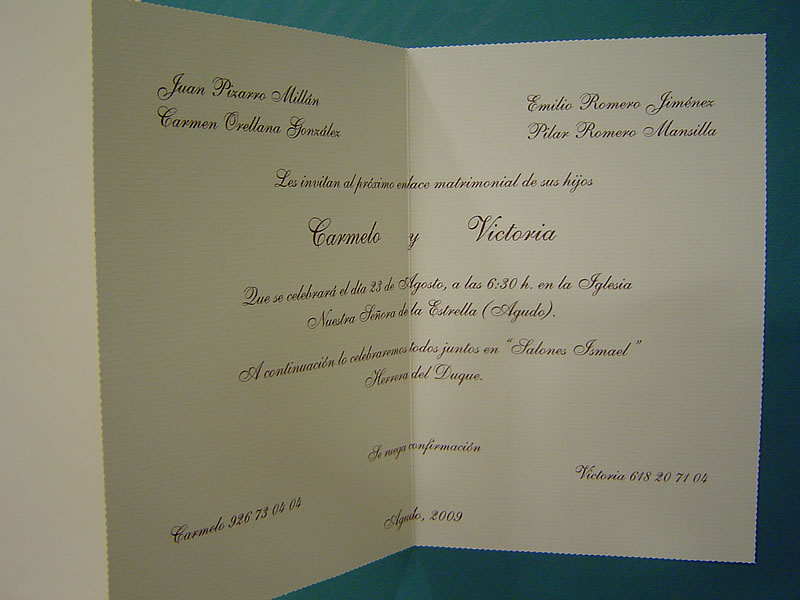 Juan Pizarro Millán
Carmen Orellana González
Emilio Romero Jiménez
Pilar Romero Mansilla
Les invitan al próximo enlace matrimonial de sus hijos
Carmelo y Victoria
Que se celebrará el día 23 de Agosto, a las 6:30 h. en la Iglesia
Nuestra Señora de la Estrella (Agudo).
A continuación lo celebraremos todos juntos en "Salones Ismael"
Herrera del Duque.
Se ruega confirmación
Victoria 618 20 71 04
Carmelo 926 73 04 04
Agudo, 2009